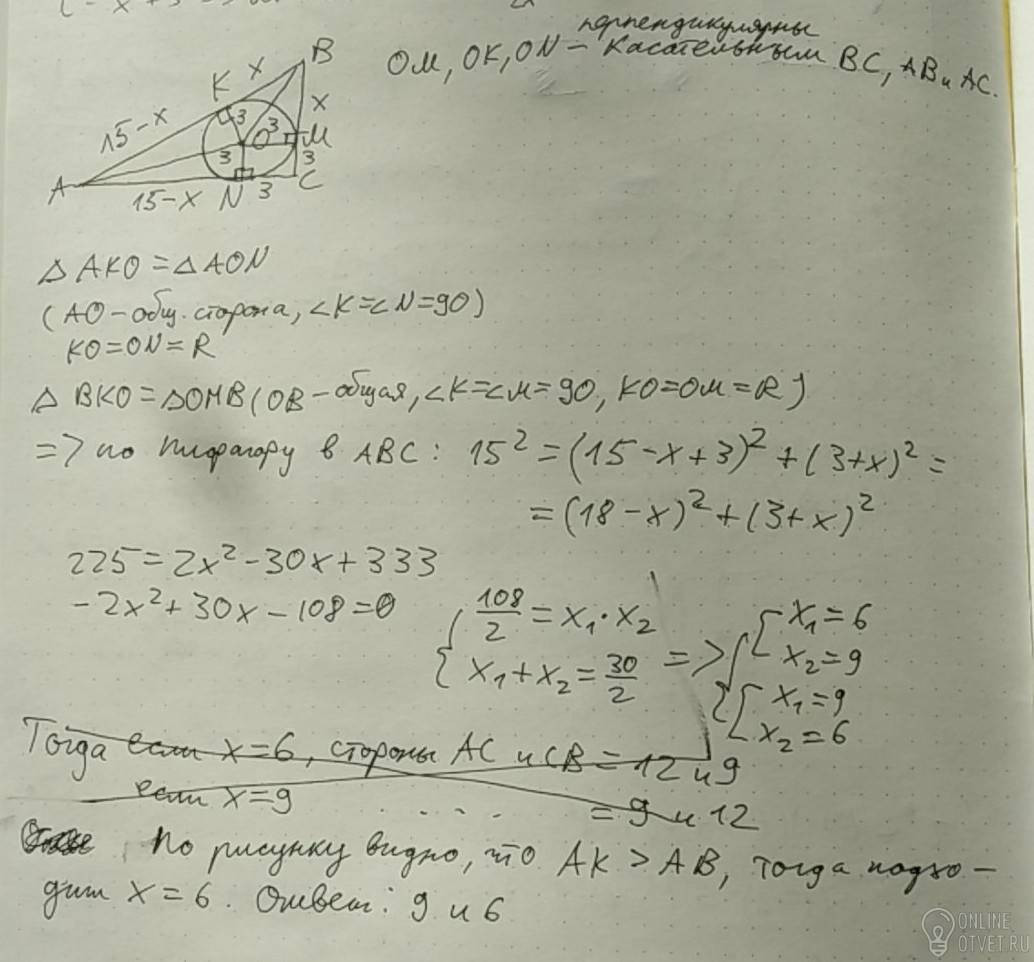 перпендикулярны
OM, OK, ON – касательным BC, AB и AC.
B
x
K
x
15-x
3
3
O
M
3
3
A
C
15-x
N
3
△ AKO = △ AON
(AO – общ. сторона, ∠K=∠N=90)
KO=ON=R
△ BKO = △OMB (OB – общая, ∠K=∠M=90, KO=OM=R)
=> по Пифагору в ABC: 15² = (15-x+3)² + (3+x)² =
= (18-x)² + (3+x)²
225 = 2x² - 30x + 333
-2x² + 30x - 108 = 0
{ 108/2 = x₁·x₂
x₁+x₂ = 30/2 =>
{ [ x₁=6
x₂=9
[ x₁=9
x₂=6
Тогда если x=6, стороны AC и CB = 12 и 9
если x=9 . . . . = 9 и 12
По рисунку видно, что AK > AB, тогда подхо-
дит x=6. Ответ: 9 и 6
ONLINE
OTVET.RU